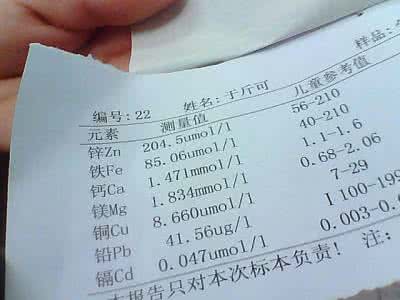 编号:22 姓名:于斤可 样品:
元素 测量值 儿童参考值
锌Zn 204.5umol/l 56-210
铁Fe 85.06umol/l 40-210
钙Ca 1.471mmol/l 1.1-1.6
镁Mg 1.834mmol/l 0.68-2.06
铜Cu 8.660umol/l 7-29
铅Pb 41.56ug/l I 100-199
镉Cd 0.047umol/l 0.003-0.
本报告只对本次标本负责! 注: